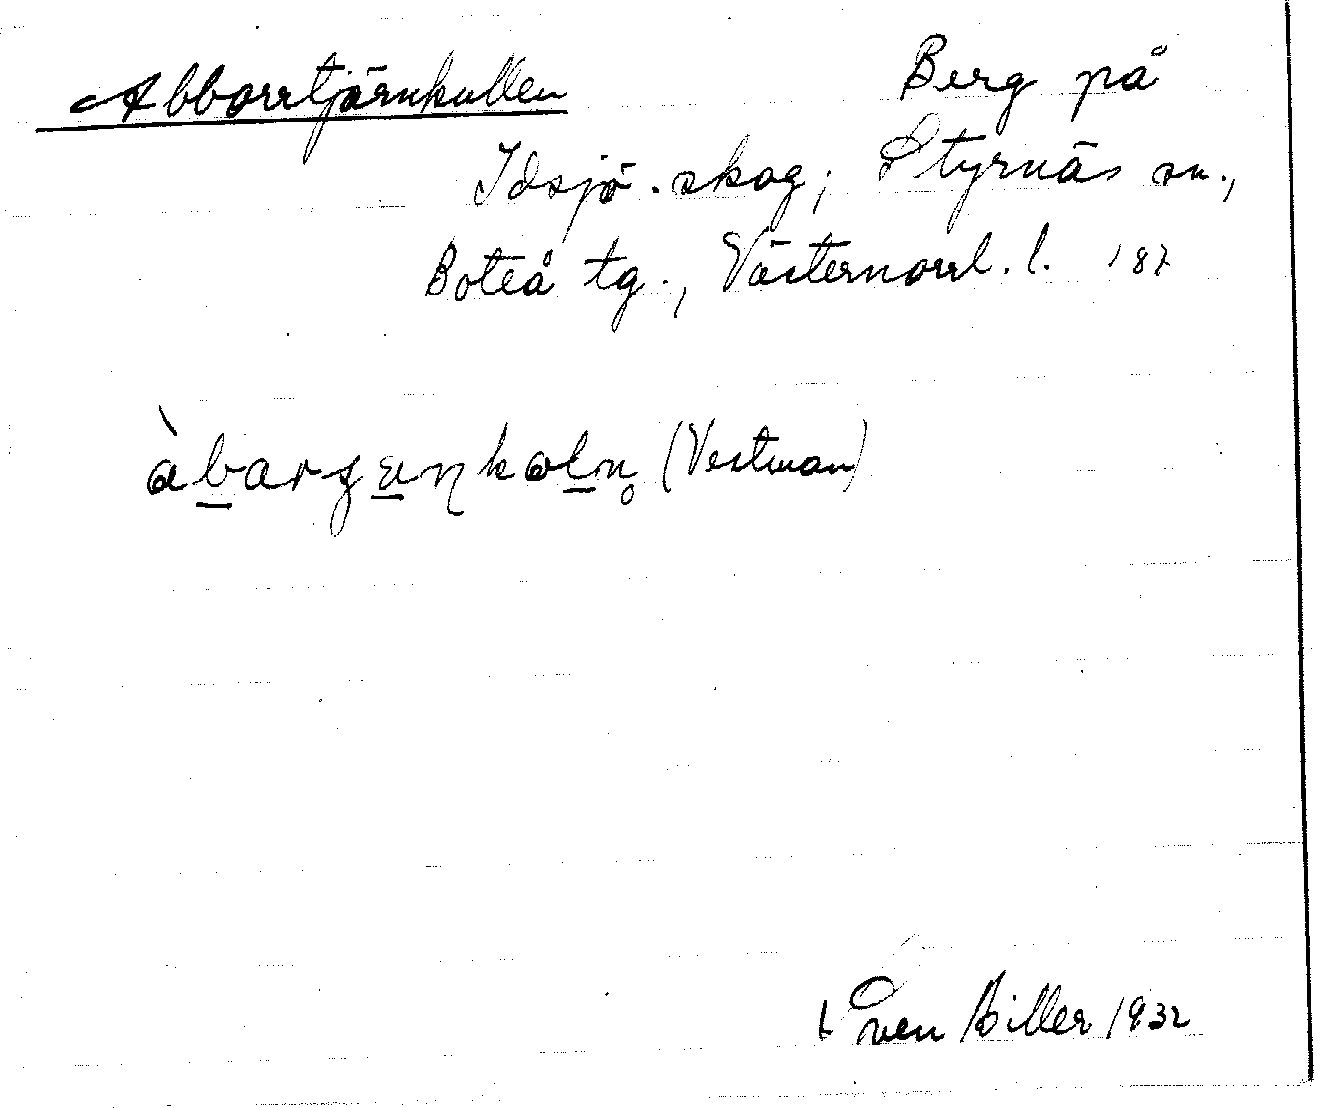 Abborrtjärnkullen Berg på
Idsjö skog, Styrnäs sn.,
Boteå tg., Västernorrl. l. 187
(Vestman)
Sven Biller 1932